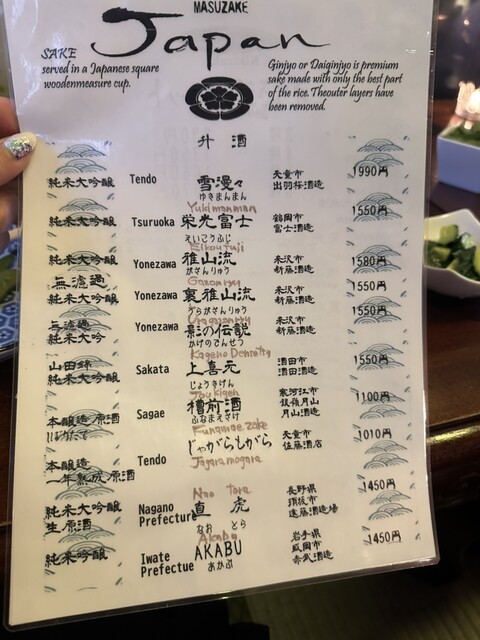 MASUZAKE
Japan
SAKE
served in a Japanese square
woodenmeasure cup.
Ginjyo or Daiginjyo is premium
sake made with only the best part
of the rice. Theouter layers have
been removed.
升 酒
純米大吟醸 Tendo 雪漫々 天童市 1990円
ゆきまんまん 出羽桜酒造
Yukimanman
純米大吟醸 Tsuruoka 栄光冨士 鶴岡市 1550円
えいこうふじ 富士酒造
Eikoufuji
純米大吟醸 Yonezawa 雅山流 米沢市 1580円
がさんりゅう 新藤酒造
Gasanryu
無濾過
純米大吟醸 Yonezawa 裏雅山流 米沢市 1550円
うらがさんりゅう 新藤酒造
Uragasanryu
無濾過
純米大吟 Yonezawa 影の伝説 米沢市 1550円
かげのでんせつ 新藤酒造
Kageno Densetsu
山田錦
純米大吟醸 Sakata 上喜元 酒田市 1550円
じょうきげん 酒田酒造
Joukigen
本醸造 原酒 Sagae 槽前酒 寒河江市 1100円
しぼりたて ふなまえさけ 銀嶺月山
月山酒造
Funamae zake
本醸造 Tendo じゃがらもがら 天童市 1010円
一年熟成原酒 佐藤酒店
Jagaramogara
Nao tora
純米大吟醸 Nagano 直 虎 長野県 1450円
生原酒 Prefecture なお とら 須坂市
遠藤酒造場
Akabu
純米吟醸 Iwate AKABU 岩手県 1450円
Prefectue あかぶ 盛岡市
赤武酒造